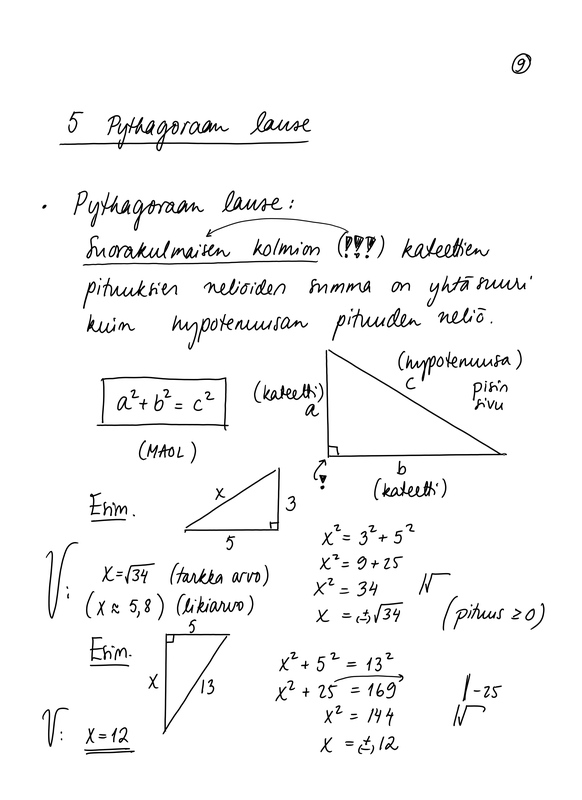 9
5 Pythagoraan lause
• Pythagoraan lause:
Suorakulmaisen kolmion (!!!) kateettien
pituuksien neliöiden summa on yhtä suuri
kuin hypotenuusan pituuden neliö.
a² + b² = c²
(MAOL)
(kateetti)
a
(hypotenuusa)
c
pisin
sivu
!
b
(kateetti)
Esim.
x
3
5
x² = 3² + 5²
x² = 9 + 25
x² = 34 |√
x = (±)√34 (pituus ≥ 0)
V: x = √34 (tarkka arvo)
(x ≈ 5,8) (likiarvo)
Esim.
5
x
13
x² + 5² = 13²
x² + 25 = 169 |-25
x² = 144 |√
x = (±) 12
V: x = 12